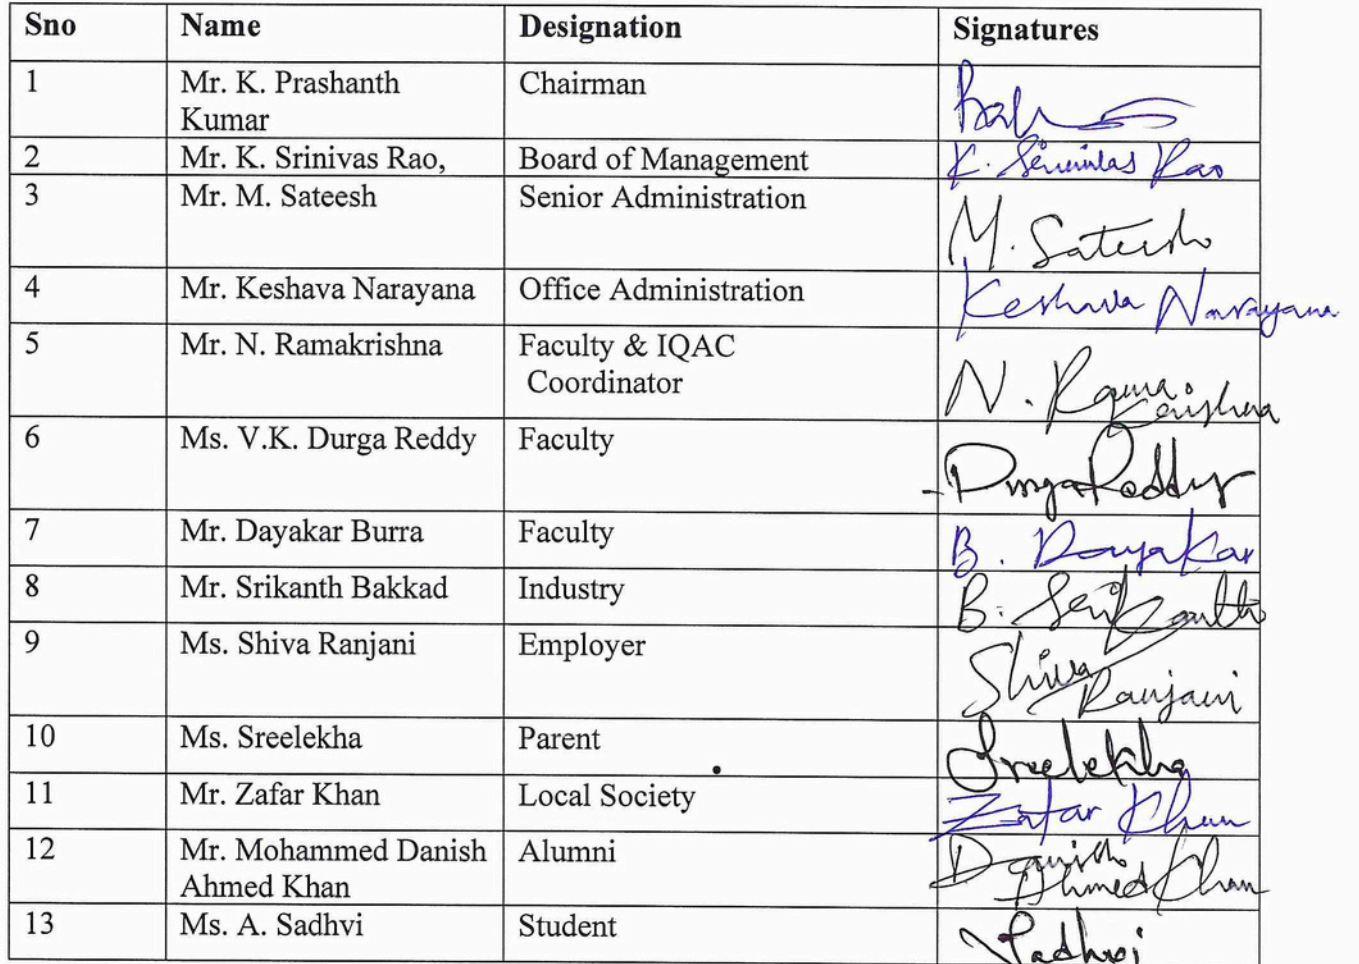 Sno Name Designation Signatures
1 Mr. K. Prashanth Chairman
Kumar
2 Mr. K. Srinivas Rao, Board of Management K. Srinivas Rao
3 Mr. M. Sateesh Senior Administration M. Sateesh
4 Mr. Keshava Narayana Office Administration Keshava Narayana
5 Mr. N. Ramakrishna Faculty & IQAC N. Rama
Coordinator Krishna
6 Ms. V.K. Durga Reddy Faculty Durga Reddy
7 Mr. Dayakar Burra Faculty B. Dayakar
8 Mr. Srikanth Bakkad Industry B. Srikanth
9 Ms. Shiva Ranjani Employer Shiva
Ranjani
10 Ms. Sreelekha Parent Sreelekha
11 Mr. Zafar Khan Local Society Zafar Khan
12 Mr. Mohammed Danish Alumni Danish
Ahmed Khan Ahmed Khan
13 Ms. A. Sadhvi Student Sadhvi